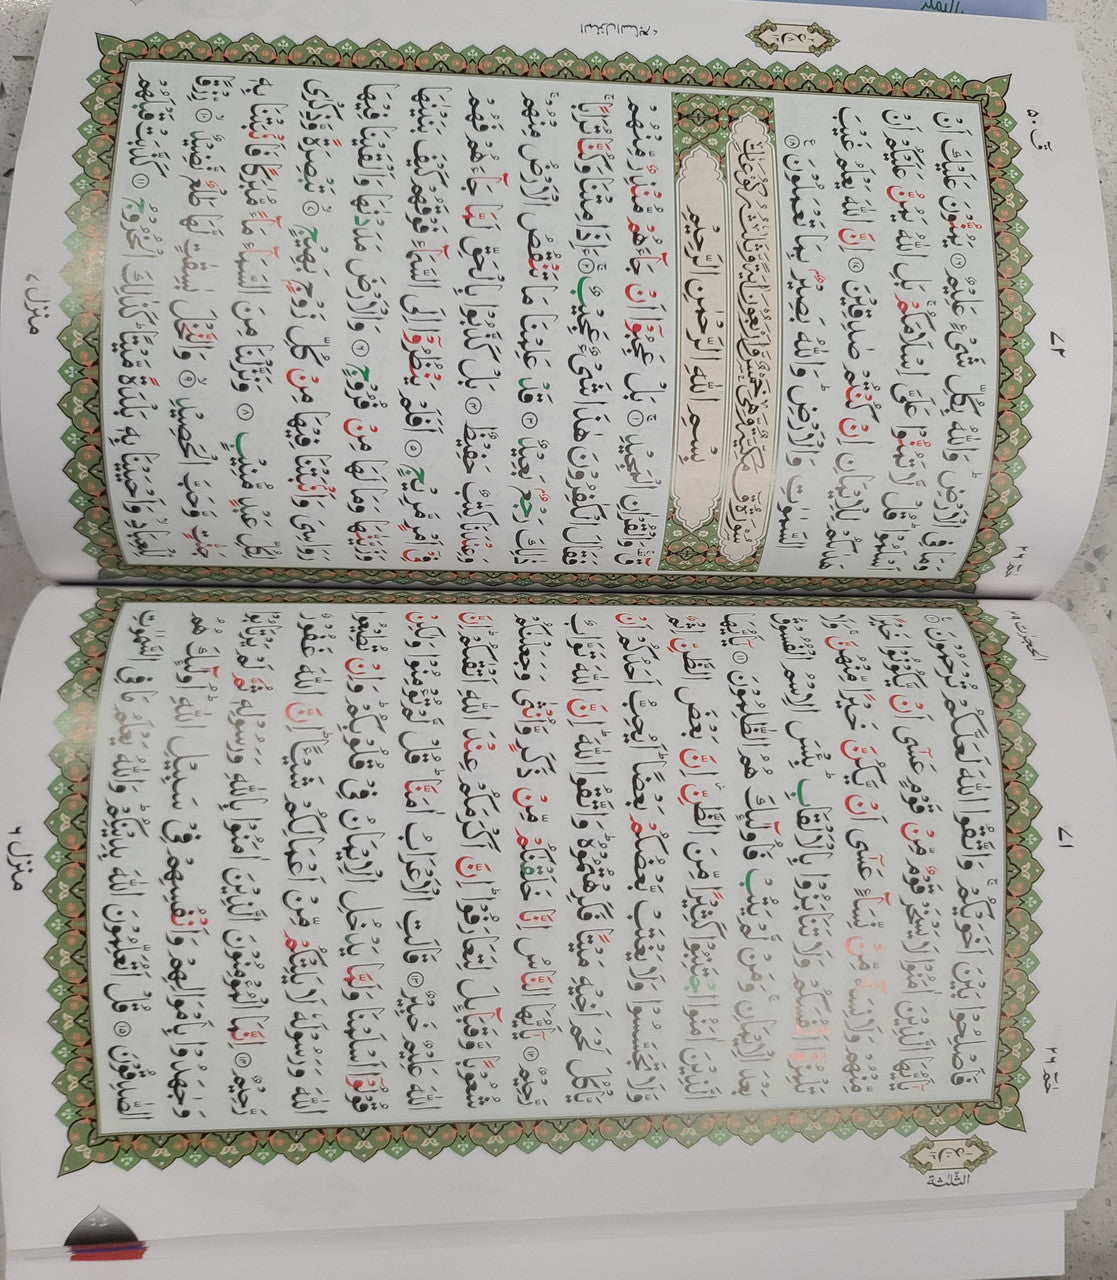 الحجرات ۴۹
۷۱
حٰمٓ ۲۶
الثلثة
فَاَصْلِحُوْا بَيْنَ اَخَوَيْكُمْ وَاتَّقُوا اللّٰهَ لَعَلَّكُمْ تُرْحَمُوْنَ ۝۱۰
يٰۤاَيُّهَا الَّذِيْنَ اٰمَنُوْا لَا يَسْخَرْ قَوْمٌ مِّنْ قَوْمٍ عَسٰۤى اَنْ يَّكُوْنُوْا خَيْرًا
مِّنْهُمْ وَلَا نِسَآءٌ مِّنْ نِّسَآءٍ عَسٰۤى اَنْ يَّكُنَّ خَيْرًا مِّنْهُنَّ ۚ وَلَا
تَلْمِزُوْۤا اَنْفُسَكُمْ وَلَا تَنَابَزُوْا بِالْاَلْقَابِ ؕ بِئْسَ الِاسْمُ الْفُسُوْقُ
بَعْدَ الْاِيْمَانِ ۚ وَمَنْ لَّمْ يَتُبْ فَاُولٰٓئِكَ هُمُ الظّٰلِمُوْنَ ۝۱۱ يٰۤاَيُّهَا
الَّذِيْنَ اٰمَنُوا اجْتَنِبُوْا كَثِيْرًا مِّنَ الظَّنِّ ؗ اِنَّ بَعْضَ الظَّنِّ اِثْمٌ
وَّلَا تَجَسَّسُوْا وَلَا يَغْتَبْ بَّعْضُكُمْ بَعْضًا ؕ اَيُحِبُّ اَحَدُكُمْ اَنْ
يَّاْكُلَ لَحْمَ اَخِيْهِ مَيْتًا فَكَرِهْتُمُوْهُ ؕ وَاتَّقُوا اللّٰهَ ؕ اِنَّ اللّٰهَ تَوَّابٌ
رَّحِيْمٌ ۝۱۲ يٰۤاَيُّهَا النَّاسُ اِنَّا خَلَقْنٰكُمْ مِّنْ ذَكَرٍ وَّاُنْثٰى وَجَعَلْنٰكُمْ
شُعُوْبًا وَّقَبَآئِلَ لِتَعَارَفُوْا ؕ اِنَّ اَكْرَمَكُمْ عِنْدَ اللّٰهِ اَتْقٰىكُمْ ؕ اِنَّ
اللّٰهَ عَلِيْمٌ خَبِيْرٌ ۝۱۳ قَالَتِ الْاَعْرَابُ اٰمَنَّا ؕ قُلْ لَّمْ تُؤْمِنُوْا وَلٰكِنْ
قُوْلُوْۤا اَسْلَمْنَا وَلَمَّا يَدْخُلِ الْاِيْمَانُ فِيْ قُلُوْبِكُمْ ؕ وَاِنْ تُطِيْعُوا
اللّٰهَ وَرَسُوْلَهٗ لَا يَلِتْكُمْ مِّنْ اَعْمَالِكُمْ شَيْـًٔا ؕ اِنَّ اللّٰهَ غَفُوْرٌ
رَّحِيْمٌ ۝۱۴ اِنَّمَا الْمُؤْمِنُوْنَ الَّذِيْنَ اٰمَنُوْا بِاللّٰهِ وَرَسُوْلِهٖ ثُمَّ لَمْ يَرْتَابُوْا
وَجٰهَدُوْا بِاَمْوَالِهِمْ وَاَنْفُسِهِمْ فِيْ سَبِيْلِ اللّٰهِ ؕ اُولٰٓئِكَ هُمُ
الصّٰدِقُوْنَ ۝۱۵ قُلْ اَتُعَلِّمُوْنَ اللّٰهَ بِدِيْنِكُمْ ؕ وَاللّٰهُ يَعْلَمُ مَا فِى السَّمٰوٰتِ
منزل ۶
حٰمٓ ۲۶
۷۲
قٓ ۵۰
المنزل السابع ۷
وَمَا فِى الْاَرْضِ ؕ وَاللّٰهُ بِكُلِّ شَيْءٍ عَلِيْمٌ ۝۱۶ يَمُنُّوْنَ عَلَيْكَ اَنْ
اَسْلَمُوْا ؕ قُلْ لَّا تَمُنُّوْا عَلَيَّ اِسْلَامَكُمْ ۚ بَلِ اللّٰهُ يَمُنُّ عَلَيْكُمْ اَنْ
هَدٰىكُمْ لِلْاِيْمَانِ اِنْ كُنْتُمْ صٰدِقِيْنَ ۝۱۷ اِنَّ اللّٰهَ يَعْلَمُ غَيْبَ
السَّمٰوٰتِ وَالْاَرْضِ ؕ وَاللّٰهُ بَصِيْرٌۢ بِمَا تَعْمَلُوْنَ ۝۱۸
سُوْرَةُ قٓ مَكِّيَّةٌ وَّهِيَ خَمْسٌ وَّاَرْبَعُوْنَ اٰيَةً وَّثَلٰثُ رُكُوْعَاتٍ
بِسْمِ اللّٰهِ الرَّحْمٰنِ الرَّحِيْمِ
قٓ ۚ وَالْقُرْاٰنِ الْمَجِيْدِ ۝۱ بَلْ عَجِبُوْۤا اَنْ جَآءَهُمْ مُّنْذِرٌ مِّنْهُمْ
فَقَالَ الْكٰفِرُوْنَ هٰذَا شَيْءٌ عَجِيْبٌ ۝۲ ءَاِذَا مِتْنَا وَكُنَّا تُرَابًا ۚ
ذٰلِكَ رَجْعٌۢ بَعِيْدٌ ۝۳ قَدْ عَلِمْنَا مَا تَنْقُصُ الْاَرْضُ مِنْهُمْ ۚ
وَعِنْدَنَا كِتٰبٌ حَفِيْظٌ ۝۴ بَلْ كَذَّبُوْا بِالْحَقِّ لَمَّا جَآءَهُمْ فَهُمْ
فِيْۤ اَمْرٍ مَّرِيْجٍ ۝۵ اَفَلَمْ يَنْظُرُوْۤا اِلَى السَّمَآءِ فَوْقَهُمْ كَيْفَ بَنَيْنٰهَا
وَزَيَّنّٰهَا وَمَا لَهَا مِنْ فُرُوْجٍ ۝۶ وَالْاَرْضَ مَدَدْنٰهَا وَاَلْقَيْنَا فِيْهَا
رَوَاسِيَ وَاَنْۢبَتْنَا فِيْهَا مِنْ كُلِّ زَوْجٍۭ بَهِيْجٍ ۝۷ تَبْصِرَةً وَّذِكْرٰى
لِكُلِّ عَبْدٍ مُّنِيْبٍ ۝۸ وَنَزَّلْنَا مِنَ السَّمَآءِ مَآءً مُّبٰرَكًا فَاَنْۢبَتْنَا بِهٖ
جَنّٰتٍ وَّحَبَّ الْحَصِيْدِ ۝۹ وَالنَّخْلَ بٰسِقٰتٍ لَّهَا طَلْعٌ نَّضِيْدٌ ۝۱۰ رِّزْقًا
لِّلْعِبَادِ ۙ وَاَحْيَيْنَا بِهٖ بَلْدَةً مَّيْتًا ؕ كَذٰلِكَ الْخُرُوْجُ ۝۱۱ كَذَّبَتْ قَبْلَهُمْ
منزل ۷